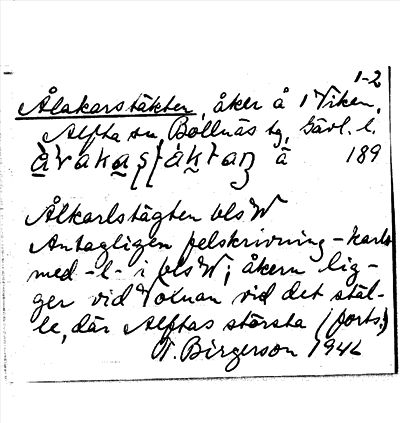 1-2
Ålakarstäkten, åker å 1 Viken,
Alfta sn Bollnäs tg, Gävl. l.
å 189
Ålkarlstägten bls W
Antagligen felskrivning -karls
med -l- i bls W; åkern lig-
ger vid Voxnan vid det stäl-
le, där Alftas största (forts.)
T. Birgerson 1942